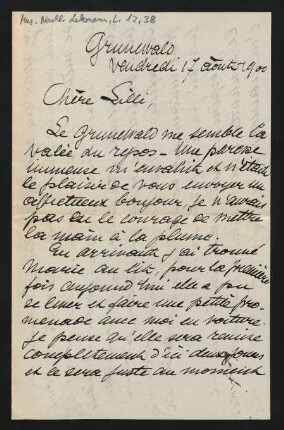 Mus. Nachl. Lehmann, L. 12, 38
Grunewald
Vendredi 17 Août 1900
Chère Lilli,
Le Grunewald me semble la
valée du repos – Une paresse
immense m'envahit et n'était
le plaisir de vous envoyer un
affectueux bonjour, je n'aurais
pas eu le courage de mettre
la main à la plume.
En arrivant j'ai trouvé
Marie au lit, pour la première
fois aujourd'hui elle a pu
se lever et faire une petite pro-
menade avec moi en voiture.
Je pense qu'elle sera remise
complètement d'ici deux jours
et ce sera juste au moment